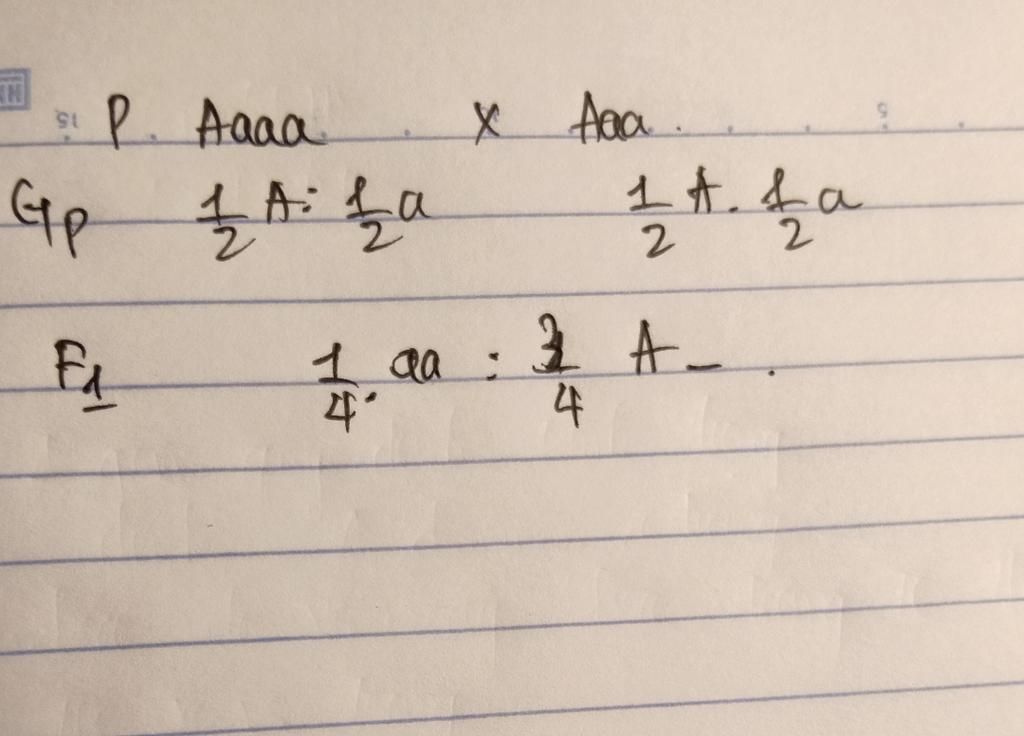 P. Aaaa x Aaa.
Gp 1/2 A: 1/2 a 1/2 A. 1/2 a
F1 1/4. aa : 3/4 A - .